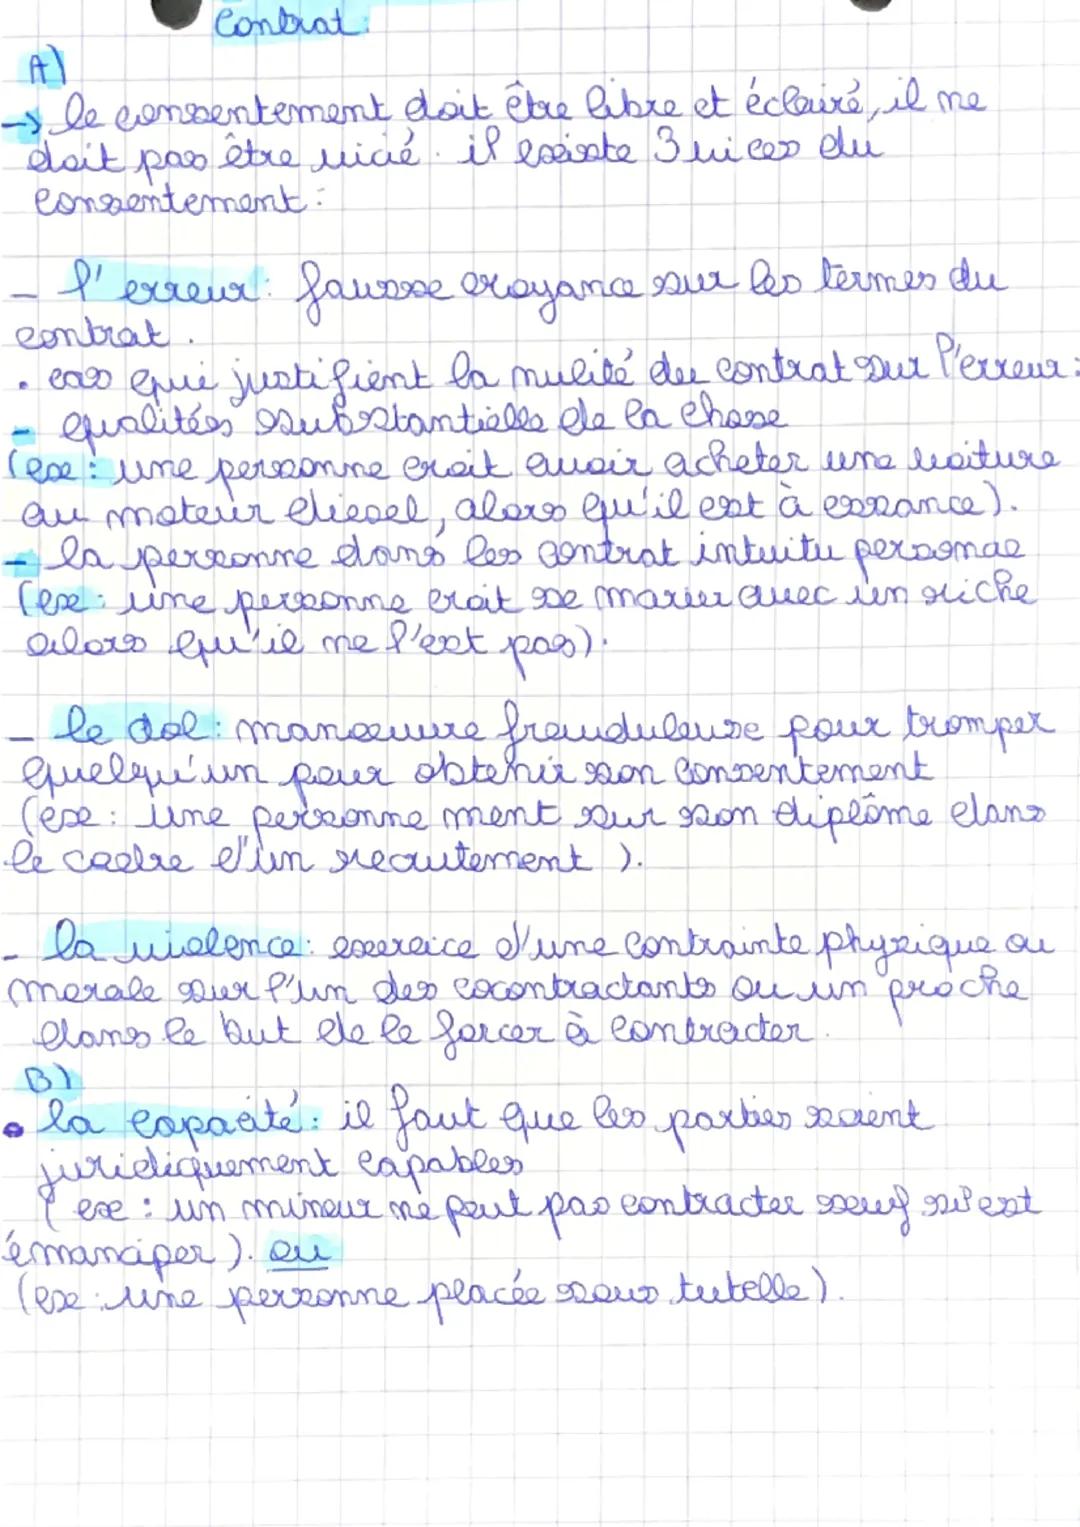 Contrat:
A)
→ le consentement doit être libre et éclairé, il ne
doit pas être vicié. il existe 3 vices du
consentement:
- l'erreur: fausse croyance sur les termes du
contrat.
• cas qui justifient la nulité du contrat sur l'erreur:
- qualités substantielle de la chose
(ex: une personne croit avoir acheter une voiture
au moteur diesel, alors qu'il est à essance).
- la personne dans les contrat intuitu personae
(ex: une personne croit se marier avec un riche
alors qu'il ne l'est pas).
- le dol: manoeuvre frauduleuse pour tromper
quelqu'un pour obtenir son consentement
(ex: une personne ment sur son diplôme dans
le cadre d'un recrutement).
- la violence: exercice d'une contrainte physique ou
morale sur l'un des cocontractants ou un proche
dans le but de le forcer à contracter.
B)
• la capacité: il faut que les parties soient
juridiquement capables
(ex: un mineur ne peut pas contracter sauf s'il est
émanciper). ou
(ex: une personne placée sous tutelle).